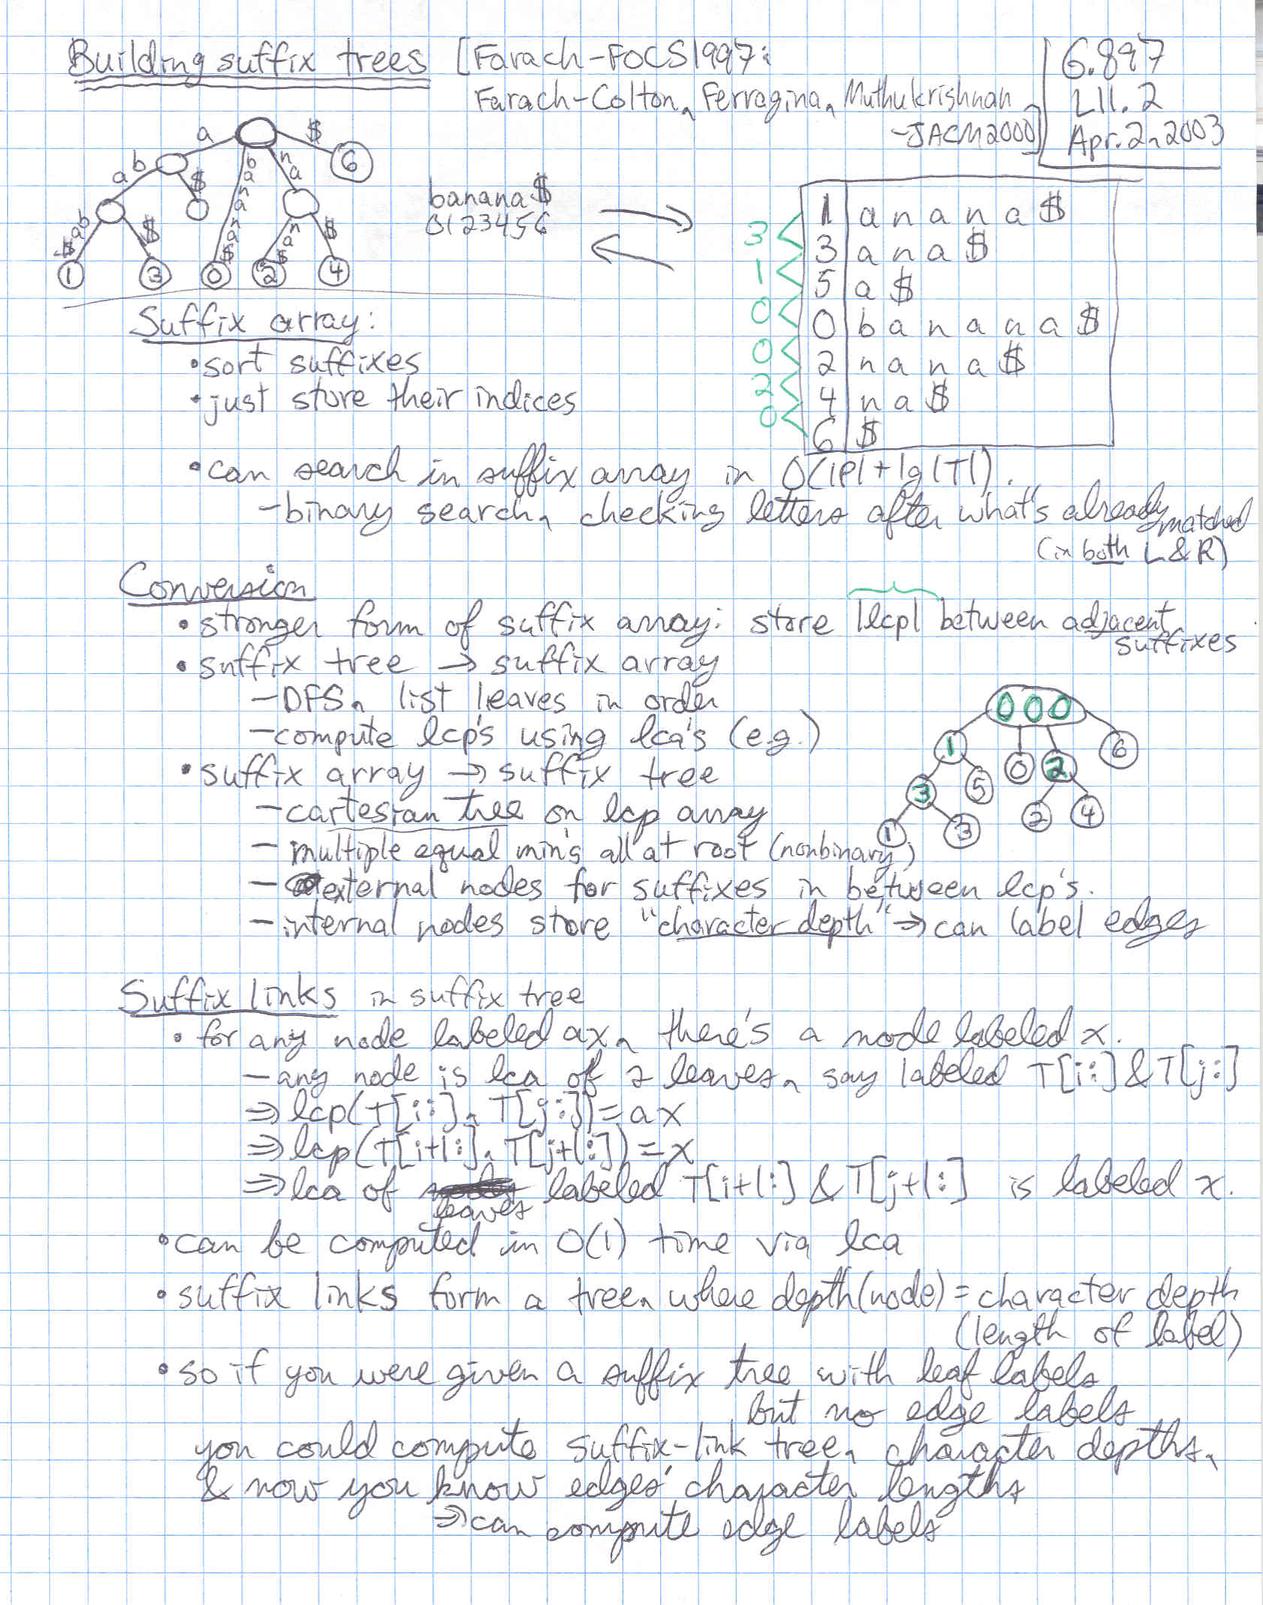 Building suffix trees [Farach-FOCS1997;
Farach-Colton, Ferragina, Muthukrishnan
-JACM2000]
6.897
L11.2
Apr. 2, 2003
a $
a b $ b a n a n a $ n a 6
$ a b $ n a $ $
1 3 0 2 4
banana$
0123456
1 anana$
3 ana$
5 a$
0 banana$
2 nana$
4 na$
6 $
3
1
0
0
2
0
Suffix array:
• sort suffixes
• just store their indices
• can search in suffix array in O(|P|+lg|T|).
- binary search, checking letters after what's already matched
(in both L & R)
Conversion
• stronger form of suffix array: store |lcp| between adjacent
suffixes
• suffix tree → suffix array
- DFS, list leaves in order
- compute lcp's using lca's (e.g.)
• suffix array → suffix tree
- cartesian tree on lcp array
- multiple equal min's all at root (nonbinary)
- external nodes for suffixes in between lcp's.
- internal nodes store "character depth" ⇒ can label edges
0 0 0
1 0 2 6
3 5 2 4
1 3
Suffix links in suffix tree
• for any node labeled ax, there's a node labeled x.
- any node is lca of 2 leaves, say labeled T[i:] & T[j:]
⇒ lcp(T[i:], T[j:]) = ax
⇒ lcp(T[i+1:], T[j+1:]) = x
⇒ lca of leaves labeled T[i+1:] & T[j+1:] is labeled x.
• can be computed in O(1) time via lca
• suffix links form a tree, where depth(node) = character depth
(length of label)
• so if you were given a suffix tree with leaf labels
but no edge labels
you could compute suffix-link tree, character depths,
& now you know edges' character lengths
⇒ can compute edge labels